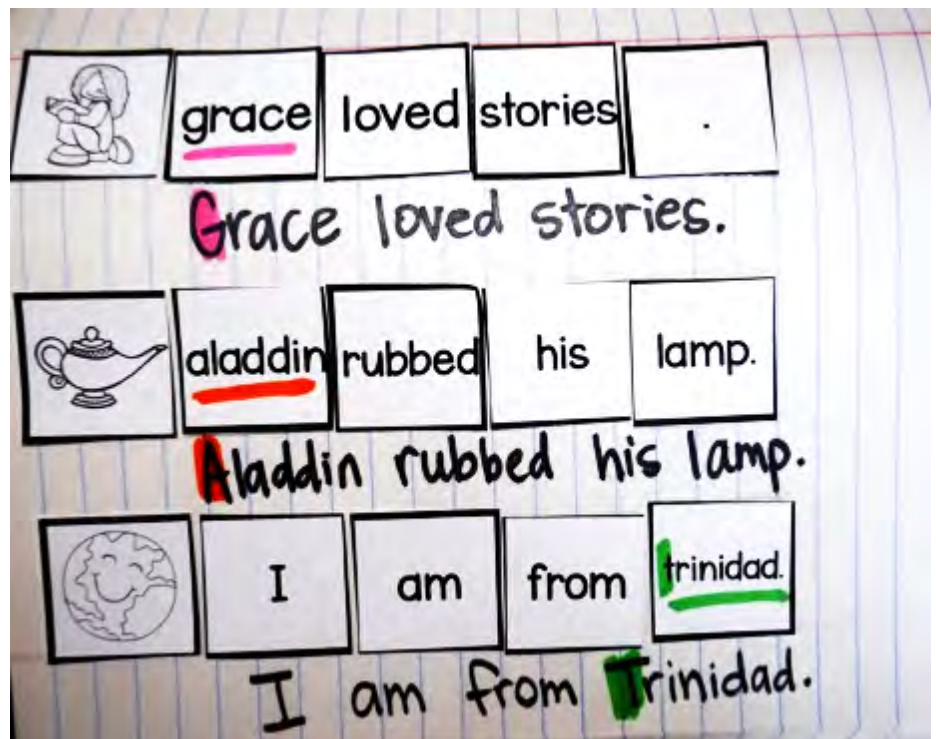 grace loved stories .
Grace loved stories.
aladdin rubbed his lamp.
Aladdin rubbed his lamp.
I am from trinidad.
I am from Trinidad.